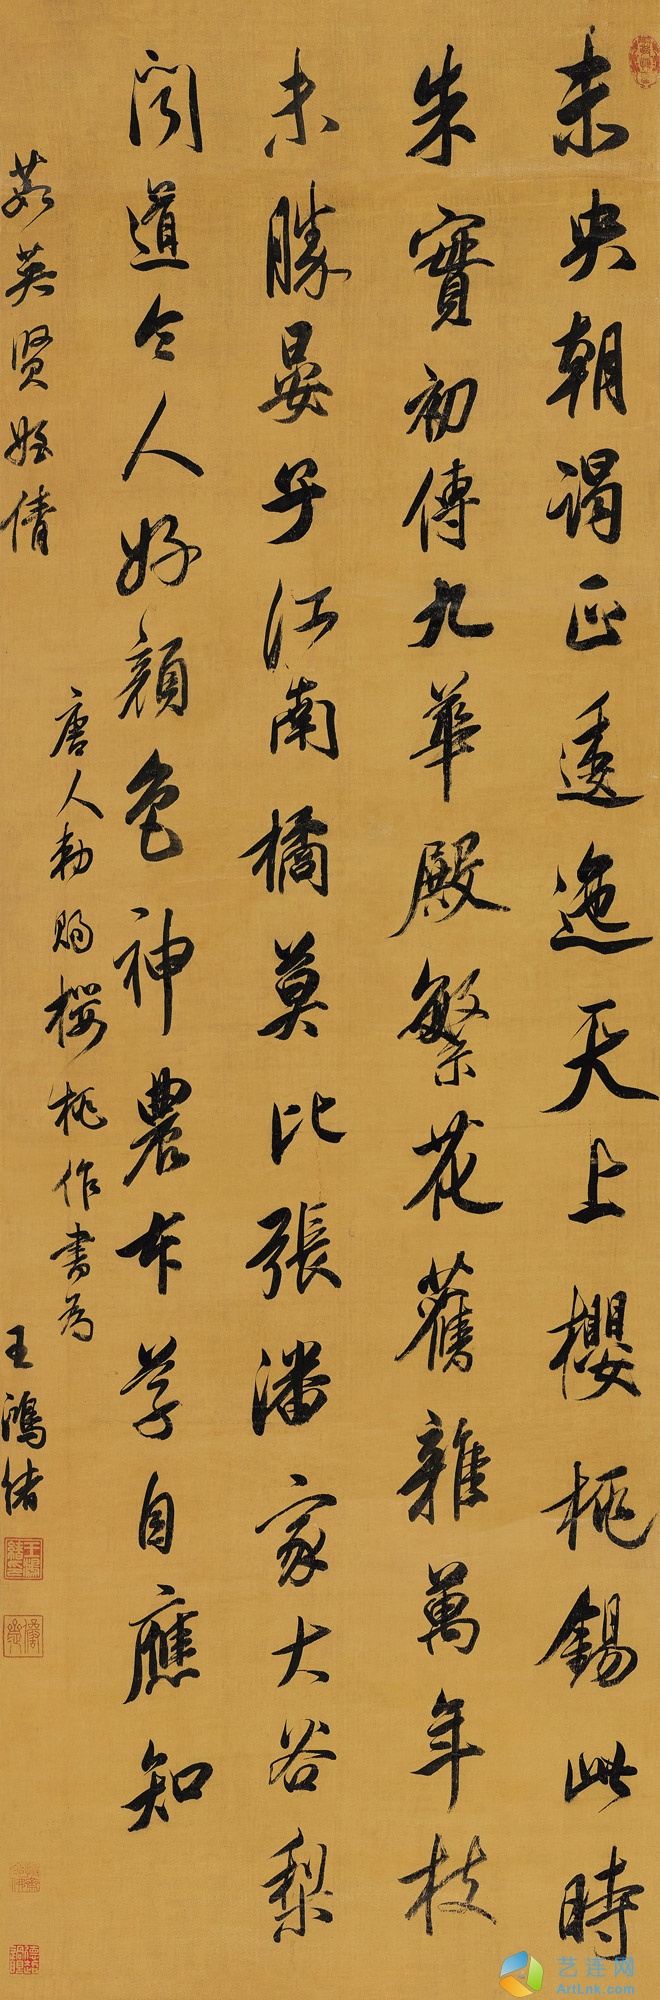 未央朝謁正逶迤天上櫻桃錫此時
朱實初傳九華殿繁花舊雜萬年枝
未勝晏子江南橘莫比張潘家大谷梨
聞道令人好顏色神農本草自應知
唐人勅賜櫻桃作書為
英賢姪倩 王鴻緒
王鴻緒印
艺连网
ArtLnk.Com